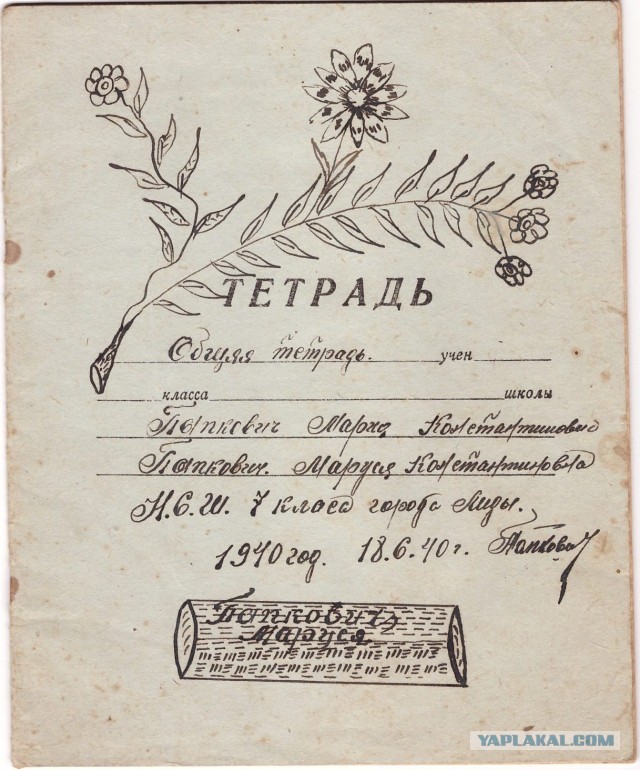 ТЕТРАДЬ
Общая тетрадь. учен
класса школы
Папкович Мария Константиновна
Папкович. Маруся Константиновна
Н.С.Ш. 7 класса города Лиды.
1940 год. 18.6.40 г. Папкович
Папкович
Маруся
YAPLAKAL.COM